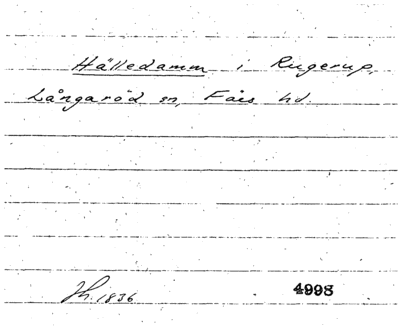 Hälledamm i Rugerup,
Långaröd sn, Färs hd.
Th. 1836 4998